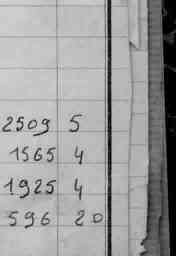 2509 5
1565 4
1925 4
596 20